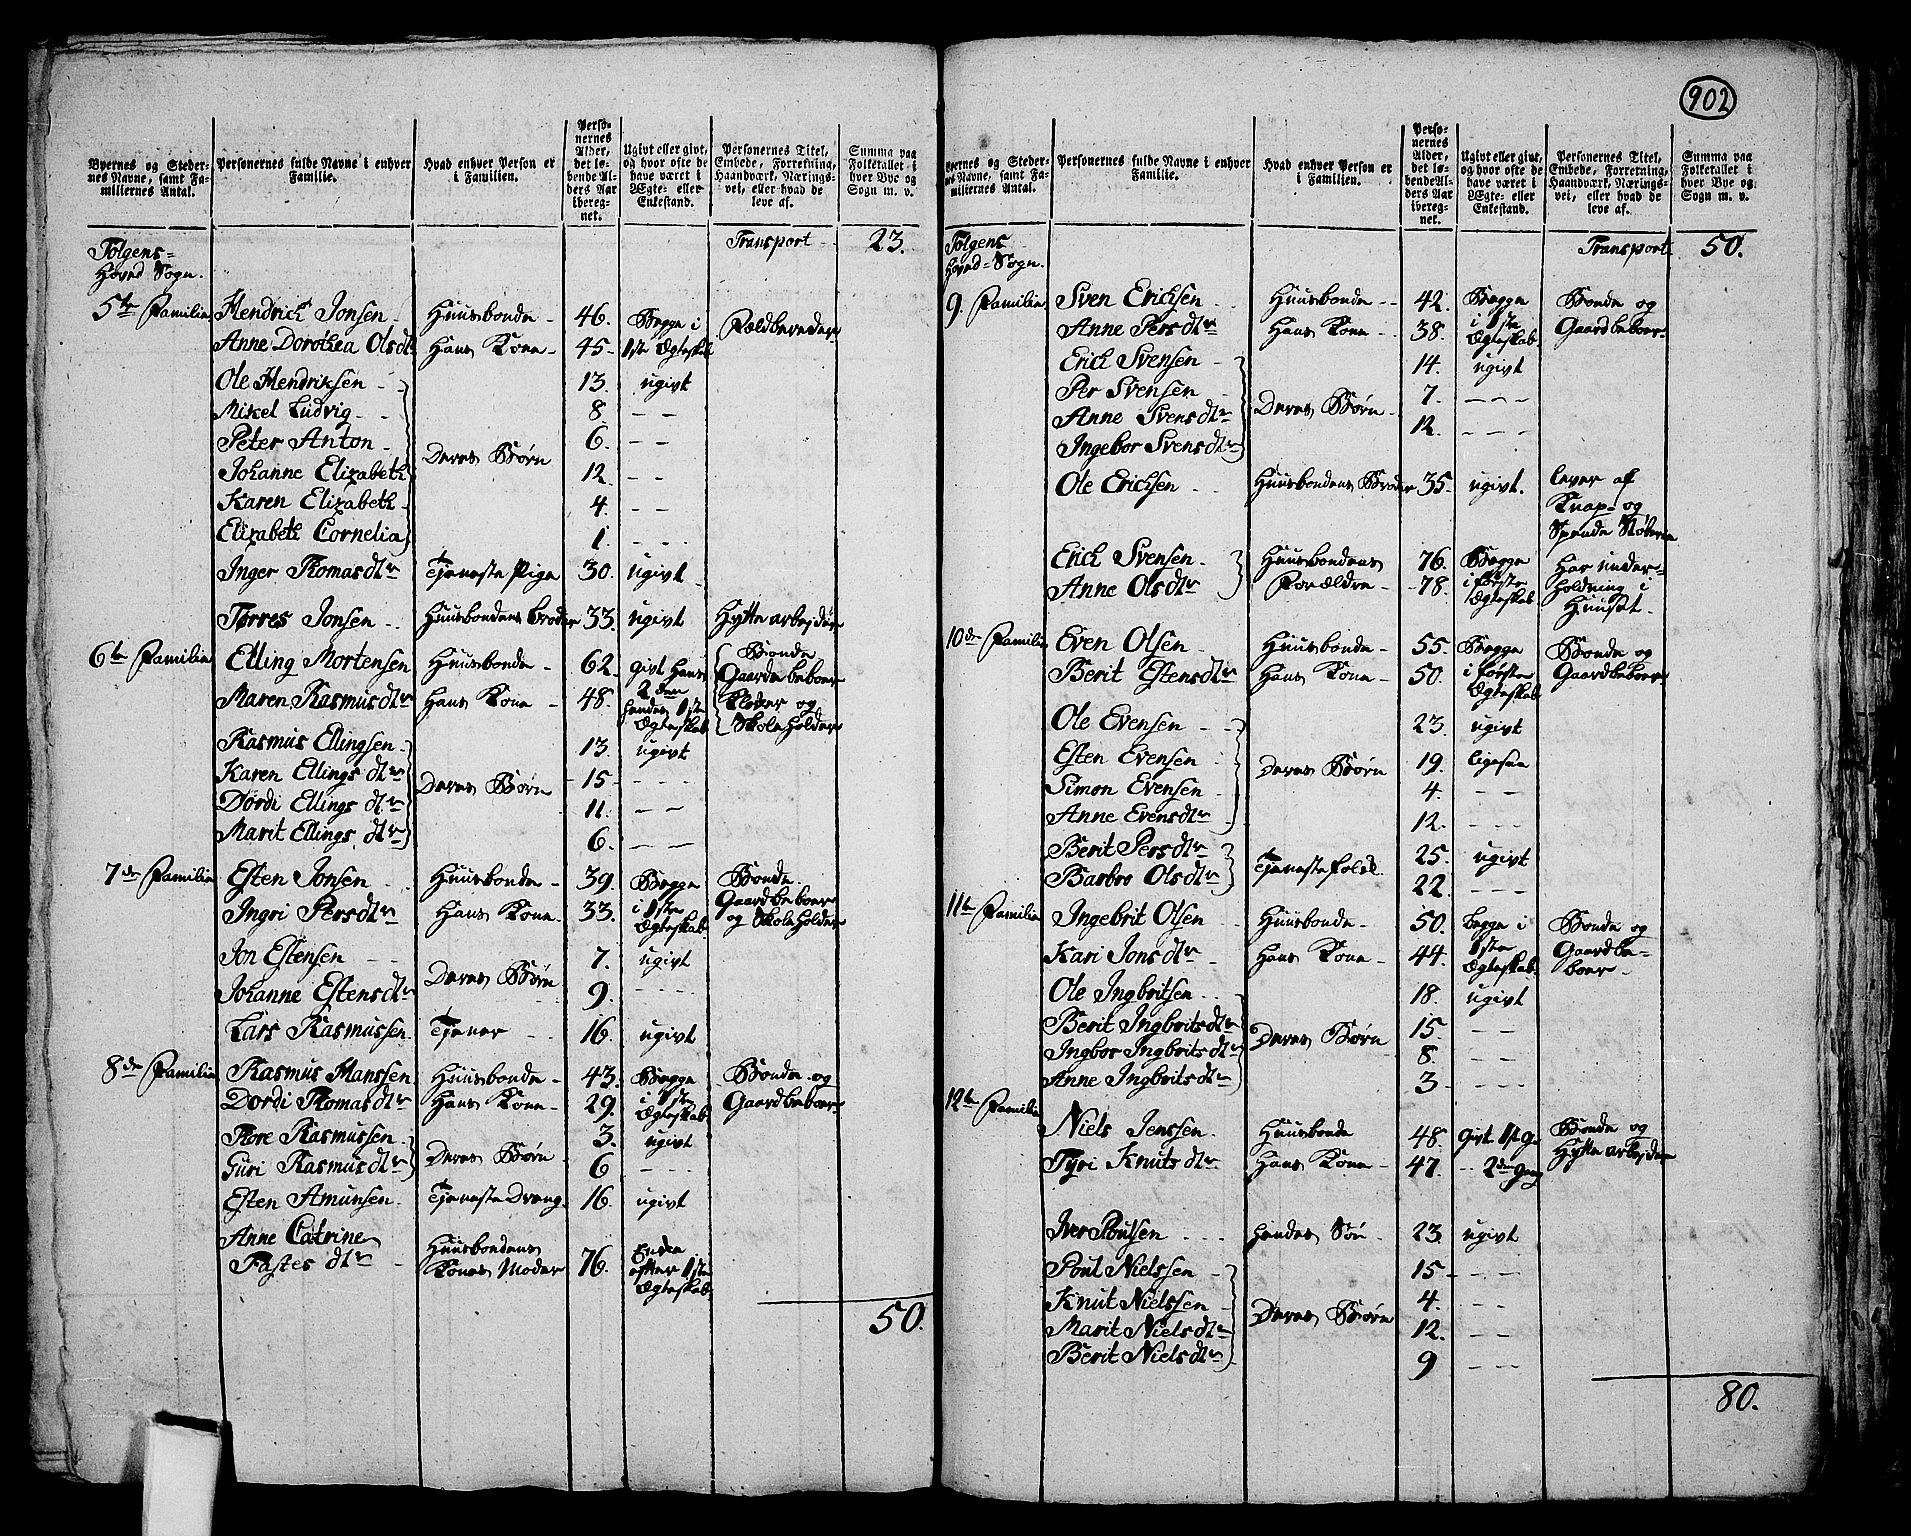 902
Byernes og Steder-
nes Navne, samt Fa-
miliernes Antal.
Personernes fulde Navne i enhver
Familie.
Hvad enhver Person er
i Familien.
Perso-
nernes
Alder,
det lø-
bende Al-
ders Aar
iberegn-
net.
Ugivt eller givt,
og hvor ofte de
have været i
Ægte- eller
Enkestand.
Personernes Titel,
Embede, Forretning,
Haandværk, Nærings-
vei, eller hvad de
leve af.
Summa paa
Folketallet i
hver Bye og
Sogn m. v.
Tolgens-
Hoved Sogn.
Transport 23.
5te Familie Hendrich Jonsen Huusbonde 46. Begge i 1ste Ægteskab Fældbereder
Anne Dorothea Olsdtr Hans Kone 45
Ole Hendriksen 13. ugivt
Mikel Ludvig 8 — —
Peter Anton 6. — —
Deres Børn
Johanne Elizabeth 12. — —
Karen Elizabeth 4. — —
Elizabeth Cornelia 1. — —
Inger Thomasdtr Tjeneste Pige 30. ugivt
Torres Jonsen Huusbondens broder 33. ugivt Hytte arbejder
6te Familie Elling Mortensen Huusbonde 62. givt hans 2den Bonde Gaardbeboer
Maren Rasmusdtr Hans Kone 48. hendes 1ste Ægteskab Kloker og Skoleholder
Rasmus Ellingsen 13. ugivt
Karen Ellings dtr Deres Børn 15 — —
Dordi Ellings dtr 11. — —
Marit Ellings dtr 6. — —
7de Familie Esten Jonsen Huusbonde 39. Begge i 1ste Ægteskab Bonde Gaardbeboer og Skoleholder
Ingri Persdtr Hans Kone 33.
Jon Estensen 7. ugivt
Deres Børn
Johanne Estensdtr 9. — —
Lars Rasmussen Tjener 16. ugivt
8de Familie Rasmus Hanssen Huusbonde 43. Begge i 1ste Ægteskab Bonde og Gaardbeboer
Dordi Thomasdtr Hans Kone 29.
Tore Rasmussen 3. ugivt
Deres Børn
Guri Rasmusdtr 6 — —
Esten Amunsen Tjeneste Dreng 16 ugivt
Anne Catrine
Fastes dtr Huusbondens Kones Moder 76. Enke efter 1ste Ægteskab
50.
Byernes og Steder-
nes Navne, samt Fa-
miliernes Antal.
Personernes fulde Navne i enhver
Familie.
Hvad enhver Person er
i Familien.
Perso-
nernes
Alder,
det lø-
bende Al-
ders Aar
iberegn-
net.
Ugivt eller givt,
og hvor ofte de
have været i
Ægte- eller
Enkestand.
Personernes Titel,
Embede, Forretning,
Haandværk, Nærings-
vei, eller hvad de
leve af.
Summa paa
Folketallet i
hver Bye og
Sogn m. v.
Tolgens
Hoved-Sogn.
Transport 50.
9. Familie Sven Erichsen Huusbonde 42. Begge i 1ste Ægteskab Bonde og Gaardbeboer
Anne Persdtr Hans Kone 38.
Erich Svensen 14. ugivt
Per Svensen 7. — —
Deres Børn
Anne Svensdtr 12. — —
Ingebor Svensdtr
Ole Erichsen Huusbondens Broder 35. ugivt. lever af
Knap- og
Spende Støberie
Erich Svensen Huusbondens 76. Begge Har under-
Anne Olsdtr Forældre 78. i første Ægteskab holdning i
Huuset.
10de Familie Even Olsen Huusbonde 55. Begge i første Ægteskab Bonde og Gaardbeboer
Berit Estensdtr Hans Kone 50.
Ole Evensen 23. ugivt
Esten Evensen 19. ligesaa
Deres Børn
Simon Evensen 4. — —
Anne Evensdtr 12. — —
Berit Persdtr 25. ugivt
Tjenestefolk
Barbro Olsdtr 22. — —
11te Familie Ingebrit Olsen Huusbonde 50. begge i 1ste Ægteskab Bonde og Gaardbe-
boer
Kari Jonsdtr Hans Kone 44.
Ole Ingbritsen 18. ugivt
Berit Ingbritsdtr 15 — —
Deres Børn
Ingbor Ingbritsdtr 8 — —
Anne Ingbritsdtr 3 — —
12te Familie Niels Jenssen Huusbonde 48. Givt 1st G. Bonde og
Tyri Knutsdtr Hans Kone 47. — 2den Gang Hytte arbejder
Iver Poulsen hendes Søn 23 ugivt
Poul Nielssen 15 — —
Knut Nielssen 4. — —
Deres Børn
Marit Nielsdtr 12. — —
Berit Nielsdtr 9 — —
80.